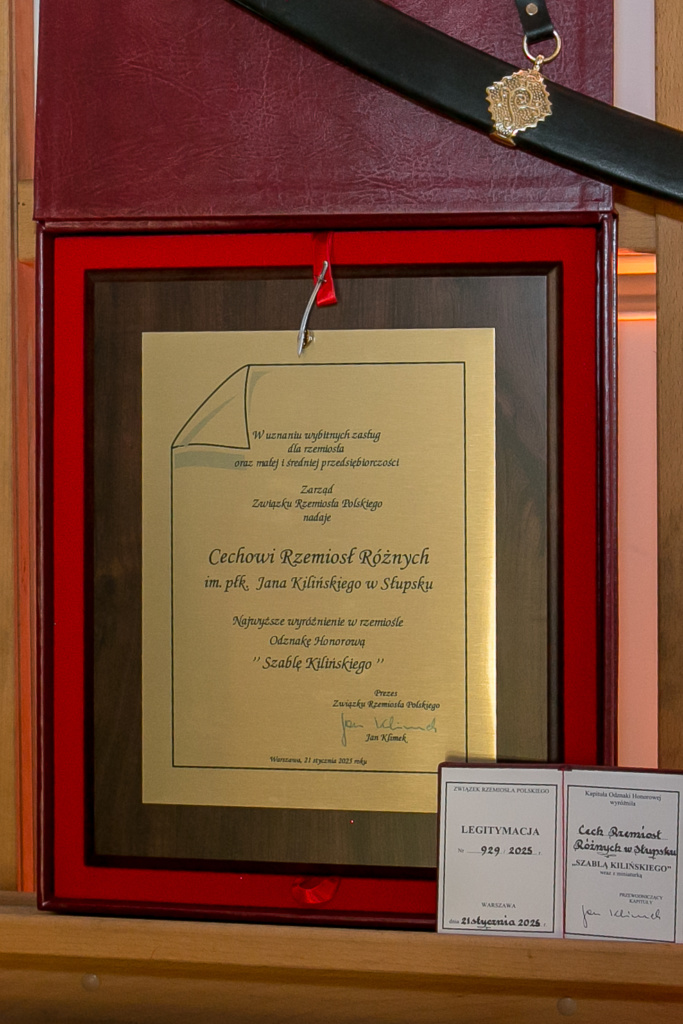 W uznaniu wybitnych zasług
dla rzemiosła
oraz małej i średniej przedsiębiorczości
Zarząd
Związku Rzemiosła Polskiego
nadaje
Cechowi Rzemiosł Różnych
im. płk. Jana Kilińskiego w Słupsku
Najwyższe wyróżnienie w rzemiośle
Odznakę Honorową
" Szablę Kilińskiego "
Prezes
Związku Rzemiosła Polskiego
Jan Klimek
Jan Klimek
Warszawa, 21 stycznia 2025 roku
ZWIĄZEK RZEMIOSŁA POLSKIEGO
LEGITYMACJA
Nr 929 / 2025 r.
WARSZAWA
dnia 21 stycznia 2025 r.
Kapituła Odznaki Honorowej
wyróżniła
Cech Rzemiosł
Różnych w Słupsku
„SZABLĄ KILIŃSKIEGO”
wraz z miniaturką
PRZEWODNICZĄCY
KAPITUŁY
Jan Klimek